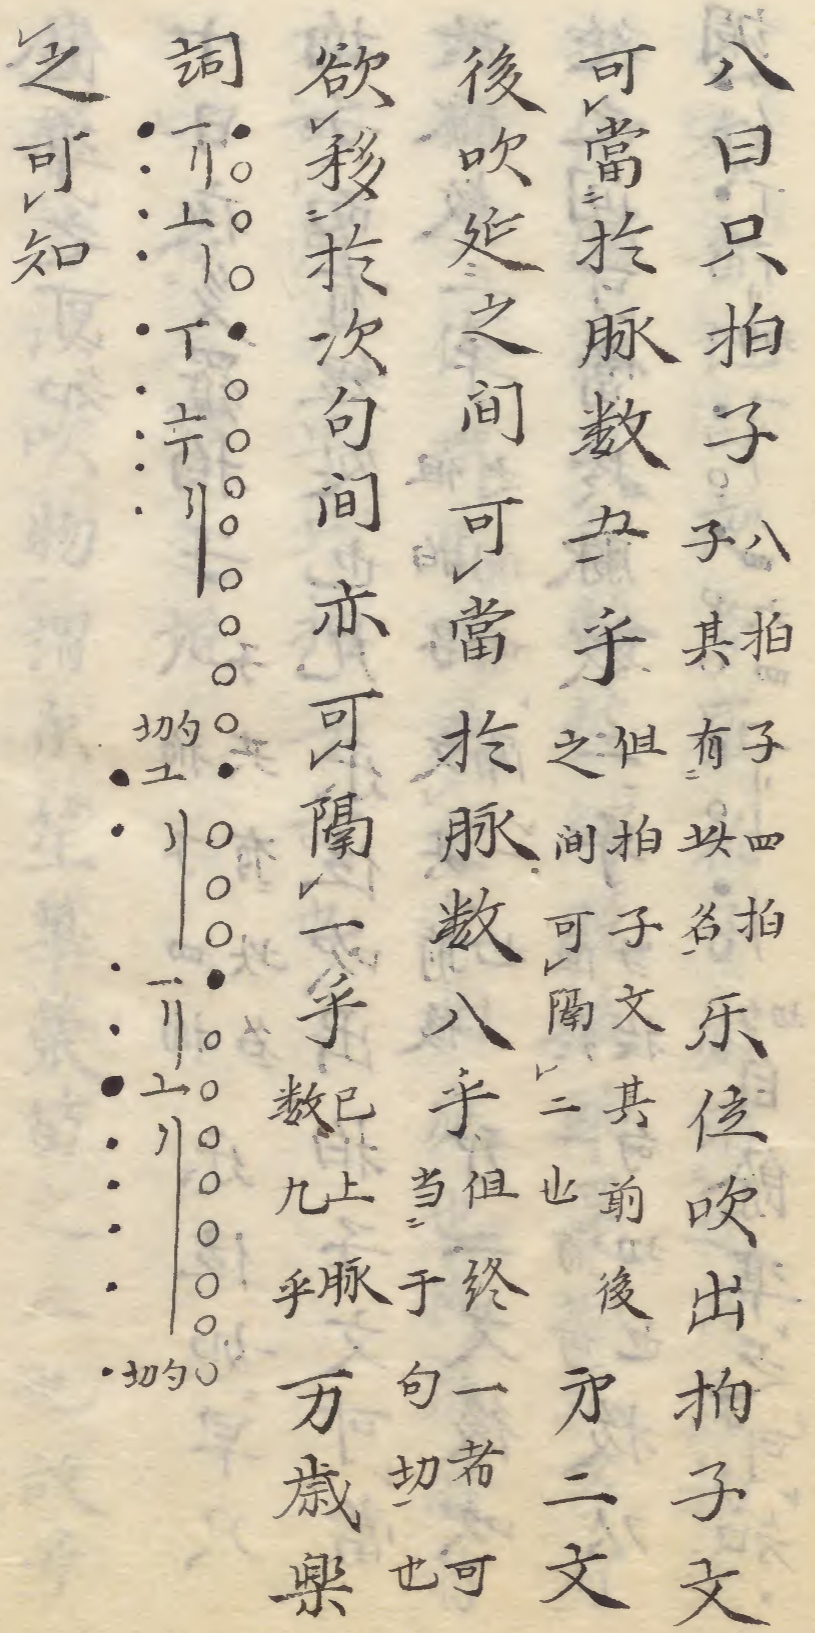 八曰只拍子八拍子四拍子其有此名乐位吹出拍子文
可當於脉数五乎但拍子文其前後之间可隔二也第二文
後吹延之间可當於脉数八乎但終一者可当于句切也
欲移於次句间亦可隔一乎已上脉数九乎万歳樂
詞
之可知